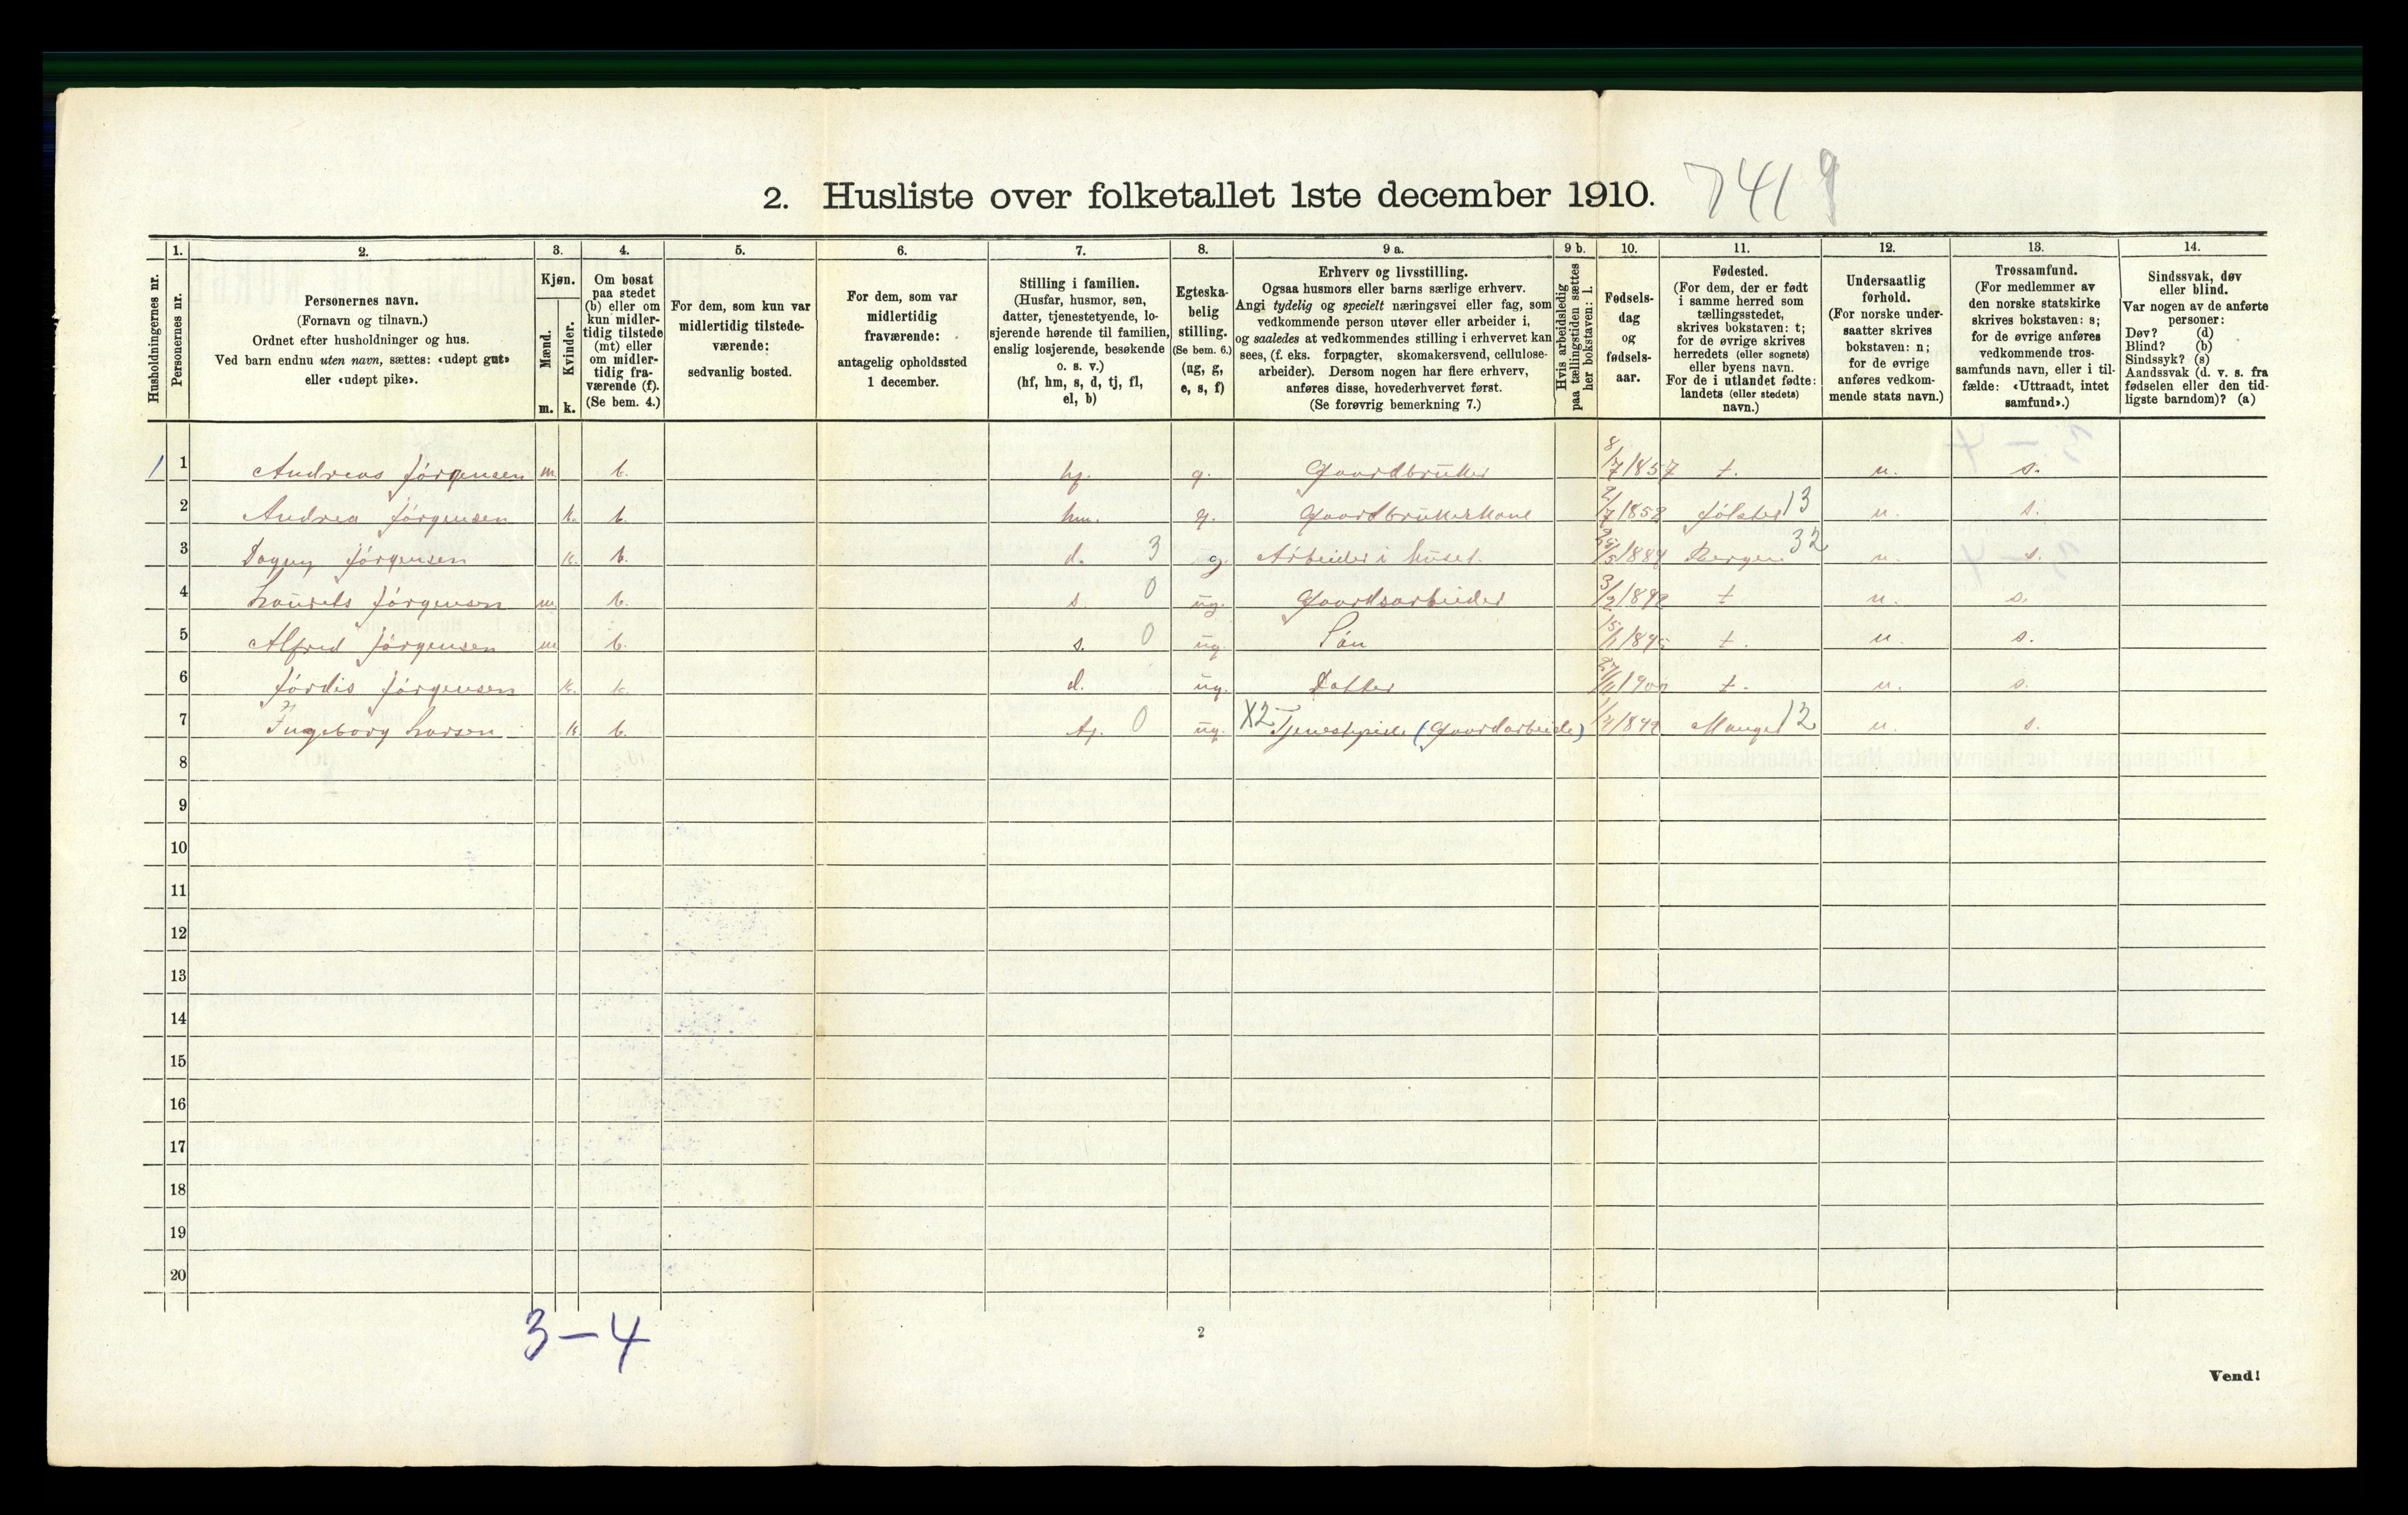 2. Husliste over folketallet 1ste december 1910. 7419
1. 2. 3. 4. 5. 6. 7. 8. 9 a. 9 b. 10. 11. 12. 13. 14.
Husholdningernes nr.
Personernes nr.
Personernes navn.
(Fornavn og tilnavn.)
Ordnet efter husholdninger og hus.
Ved barn endnu uten navn, sættes: «udøpt gut»
eller «udøpt pike».
Kjøn.
Mænd.
Kvinder.
m. k.
Om bosat
paa stedet
(b) eller om
kun midler-
tidig tilstede
(mt) eller
om midler-
tidig fra-
værende (f).
(Se bem. 4.)
For dem, som kun var
midlertidig tilstede-
værende:
sedvanlig bosted.
For dem, som var
midlertidig
fraværende:
antagelig opholdssted
1 december.
Stilling i familien.
(Husfar, husmor, søn,
datter, tjenestetyende, lo-
sjerende hørende til familien,
enslig losjerende, besøkende
o. s. v.)
(hf, hm, s, d, tj, fl,
el, b)
Egteska-
belig
stilling.
(Se bem. 6.)
(ug, g,
e, s, f)
Erhverv og livsstilling.
Ogsaa husmors eller barns særlige erhverv.
Angi tydelig og specielt næringsvei eller fag, som
vedkommende person utøver eller arbeider i,
og saaledes at vedkommendes stilling i erhvervet kan
sees, (f. eks. forpagter, skomakersvend, cellulose-
arbeider). Dersom nogen har flere erhverv,
anføres disse, hovederhvervet først.
(Se forøvrig bemerkning 7.)
Hvis arbeidsledig
paa tællingstiden sættes
her bokstaven: l.
Fødsels-
dag
og
fødsels-
aar.
Fødested.
(For dem, der er født
i samme herred som
tællingsstedet,
skrives bokstaven: t;
for de øvrige skrives
herredets (eller sognets)
eller byens navn.
For de i utlandet fødte:
landets (eller stedets)
navn.)
Undersaatlig
forhold.
(For norske under-
saatter skrives
bokstaven: n;
for de øvrige
anføres vedkom-
mende stats navn.)
Trossamfund.
(For medlemmer av
den norske statskirke
skrives bokstaven: s;
for de øvrige anføres
vedkommende tros-
samfunds navn, eller i til-
fælde: «Uttraadt, intet
samfund».)
Sindssvak, døv
eller blind.
Var nogen av de anførte
personer:
Døv? (d)
Blind? (b)
Sindssyk? (s)
Aandssvak (d. v. s. fra
fødselen eller den tid-
ligste barndom)? (a)
1 1 Andreas Jörgensen m b. hf. g. Gaardbruker 8/7 1857 t. n. s.
2 Andrea Jörgensen k. b. hm. g. Gaardbrukerkone /7 185 Jölster 13 n. s.
3 Dagny Jörgensen k. b. d. 3 g. Arbeider i huset. /5 188 Bergen 32 n. s.
4 Laurits Jörgensen m b. s 0 ug. Gaardsarbeider 3/2 189 t n. s.
5 Alfred Jörgensen m b. s. 0 ug. Sön 15/1 189 t. n. s.
6 Jördis Jörgensen k. b. d. ug. Datter 27/ 190 t. n. s.
7 Ingeborg Larsen k b. tj. 0 ug. X2 Tjenestepike (Gaardarbeide) 1/4 189 Manger 12 n. s.
8
9
10
11
12
13
14
15
16
17
18
19
20
3-4
2
Vend!